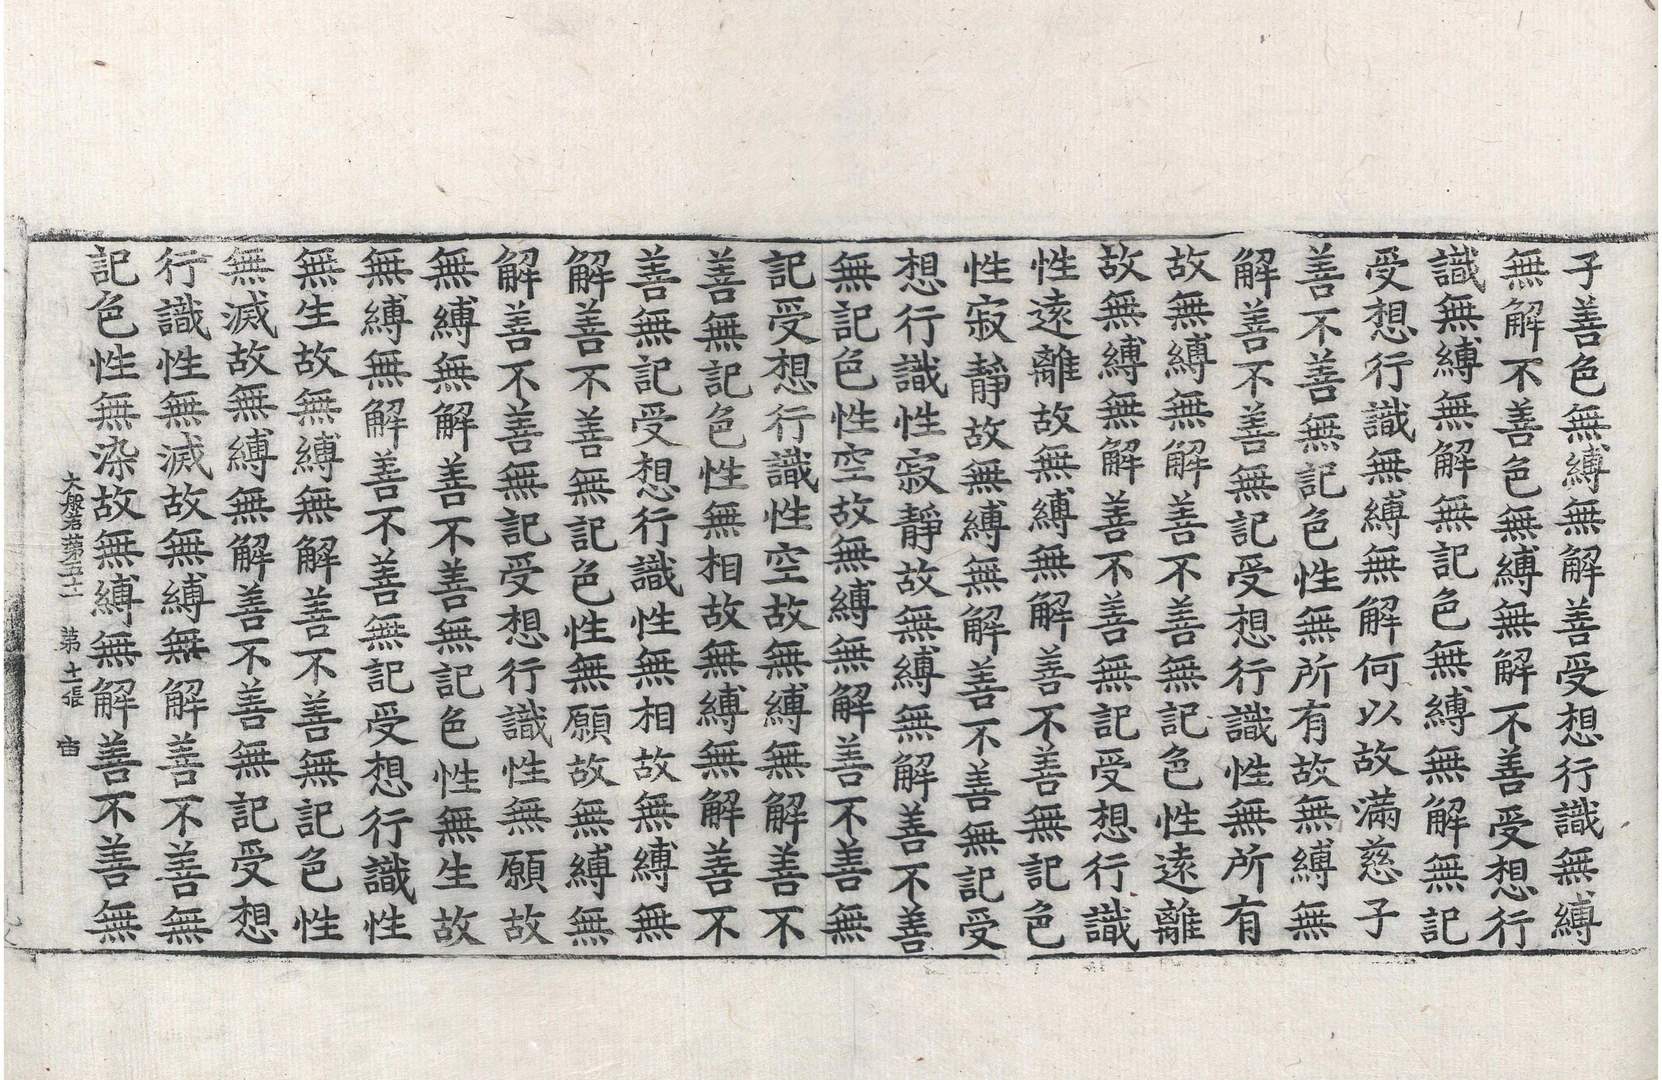 子善色無縛無解善受想行識無縛
無解不善色無縛無解不善受想行
識無縛無解無記色無縛無解無記
受想行識無縛無解何以故滿慈子
善不善無記色性無所有故無縛無
解善不善無記受想行識性無所有
故無縛無解善不善無記色性遠離
故無縛無解善不善無記受想行識
性遠離故無縛無解善不善無記色
性寂靜故無縛無解善不善無記受
想行識性寂靜故無縛無解善不善
無記色性空故無縛無解善不善無
記受想行識性空故無縛無解善不
善無記色性無相故無縛無解善不
善無記受想行識性無相故無縛無
解善不善無記色性無願故無縛無
解善不善無記受想行識性無願故
無縛無解善不善無記色性無生故
無縛無解善不善無記受想行識性
無生故無縛無解善不善無記色性
無滅故無縛無解善不善無記受想
行識性無滅故無縛無解善不善無
記色性無染故無縛無解善不善無
大般若第五十一 第十張 宙